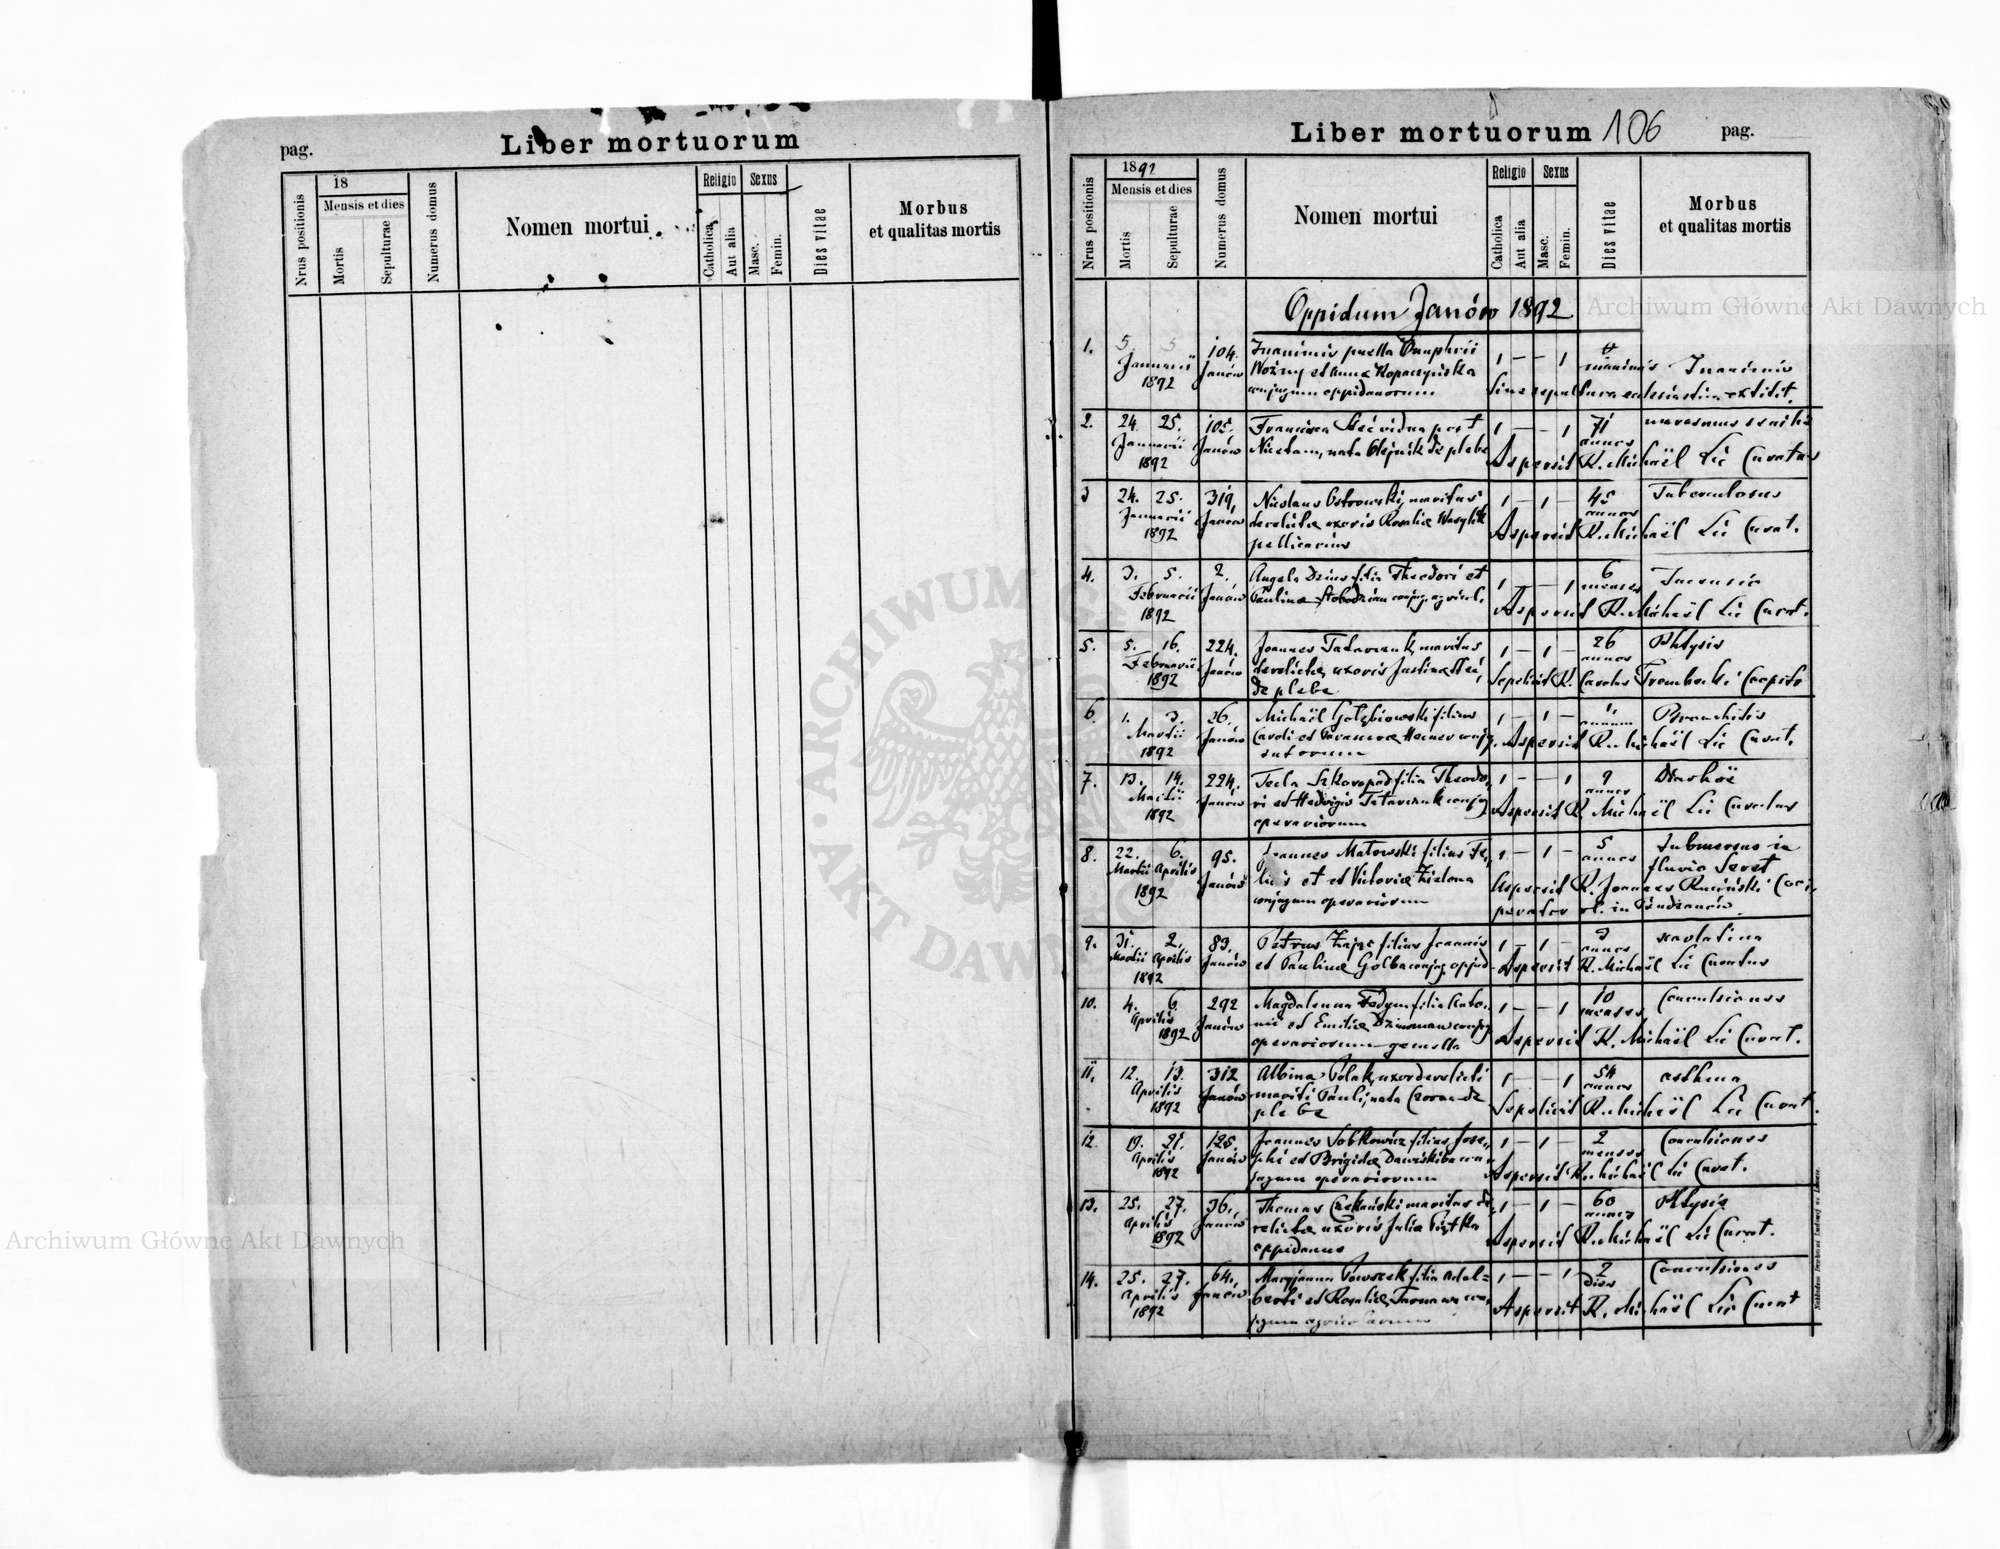 pag.
Liber mortuorum
Nrus positionis
18
Mensis et dies
Mortis
Sepulturae
Numerus domus
Nomen mortui
Religio
Catholica
Aut alia
Sexus
Masc.
Femin.
Dies vitae
Morbus
et qualitas mortis
Liber mortuorum 106 pag.
Nrus positionis
1892
Mensis et dies
Mortis
Sepulturae
Numerus domus
Nomen mortui
Religio
Catholica
Aut alia
Sexus
Masc.
Femin.
Dies vitae
Morbus
et qualitas mortis
Oppidum Janów 1892
1. 5. 5 104. puella Onuphrii 1 — — 1
Januarii Janów Woźny et Anna Kopaczyńska
1892 conjugum oppidanorum
2. 24. 25. 105. Francisca post 1 — — 1 71 marasmus senilis
Januarii Janów Nicolaum, nata Olejnik de plebe annos
1892 Aspersit R. Michaël Lic Curatus
3 24. 25. 319. Nicolaus Ostrowski, maritus 1 — 1 — 45 Tuberculosus
Januarii Janów derelictae uxoris Rosaliae Wasylik annos
1892 pellicarius Aspersit R. Michaël Lic Curat.
4. 3. 5. 2. Angela filia Theodori et 1 — — 1 6
Februarii Janów Paulinae conjug. agricol. menses
1892 Aspersit R. Michaël Lic Curat.
5. 5. 16. 224. Joannes Tatarczuk, maritus 1 — 1 — 26 Phtysis
Februarii Janów derelictae uxoris Justinae annos
1892 de plebe Sepelivit R. Carolus Cooptr
6. 1. 3. 26. Michaël Gołębiowski filius 1 — 1 — 1 Bronchitis
Martii Janów Caroli et conjg. annum
1892 sutorum Aspersit R. Michaël Lic Curat.
7. 13. 14. 224. Tecla filia Theodo- 1 — — 1 9
Martii Janów ri et Hedvigis Tatarczuk conjg annos
1892 operariorum Aspersit R. Michaël Lic Curatus
8. 22. 6. 95. Joannes Matowski filius Fe- 1 — 1 — 5 Submersus in
Martii Aprilis Janów et Victoriae Zielona annos fluvio Seret
1892 conjugum operariorum Aspersit R. Joannes Coo-
perator in Budzanów
9. 31. 2. 83. Petrus Zając filius Joannis 1 — 1 — 3 scarlatina
Martii Aprilis Janów et Paulinae Golba conjg. oppid. annos
1892 Aspersit R. Michaël Lic Curatus
10. 4. 6. 292 Magdalenna filia Anto- 1 — — 1 10 Convulsiones
Aprilis Janów nii et Emiliae conjg menses
1892 operariorum gemella Aspersit R. Michaël Lic Curat.
11. 12. 13. 312 Albina Polak, uxor derelicti 1 — — 1 54 asthma
Aprilis Janów mariti Pauli, nata de annos
1892 plebe Sepelivit R. Michaël Lic Curat.
12. 19. 21. 125. Joannes Sobkowicz filius Jose- 1 — 1 — 2 Convulsiones
Aprilis Janów phi et Brigidae con- menses
1892 jugum operariorum Aspersit R. Michaël Lic Curat.
13. 25. 27. 36. Thomas Czekański maritus de- 1 — 1 — 60 Phtysis
Aprilis Janów relictae uxoris Julia Piętka annos
1892 oppidanus Aspersit R. Michaël Lic Curat.
14. 25. 27. 64. Maryjanna filia Adal= 1 — — 1 2 Convulsiones
Aprilis Janów berti et Rosaliae Tarnawa con- dies
1892 jugum agricolarum Aspersit R. Michaël Lic Curat
Archiwum Główne Akt Dawnych
Archiwum Główne Akt Dawnych